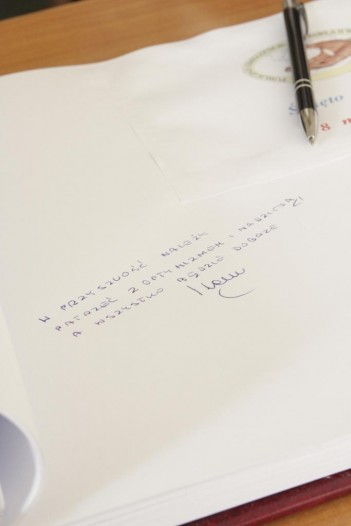 Święto
8 m
W PRZYSZŁOŚĆ NALEŻY
PATRZEĆ Z OPTYMIZMEM I NADZIEJĄ,
A WSZYSTKO BĘDZIE DOBRZE